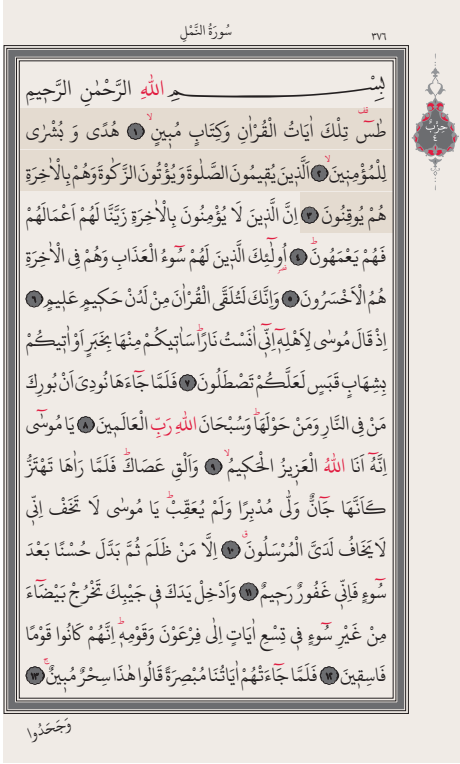 سُورَةُ النَّمْلِ
٣٧٦
حزب
٤
بِسْمِ اللهِ الرَّحْمٰنِ الرَّحٖيمِ
طٰسٓ تِلْكَ اٰيَاتُ الْقُرْاٰنِ وَكِتَابٍ مُبٖينٍۙ ١ هُدًى وَ بُشْرٰى
لِلْمُؤْمِنٖينَۙ ٢ اَلَّذٖينَ يُقٖيمُونَ الصَّلٰوةَ وَيُؤْتُونَ الزَّكٰوةَ وَهُمْ بِالْاٰخِرَةِ
هُمْ يُوقِنُونَ ٣ اِنَّ الَّذٖينَ لَا يُؤْمِنُونَ بِالْاٰخِرَةِ زَيَّنَّا لَهُمْ اَعْمَالَهُمْ
فَهُمْ يَعْمَهُونَۜ ٤ اُولٰٓئِكَ الَّذٖينَ لَهُمْ سُٓوءُ الْعَذَابِ وَهُمْ فِى الْاٰخِرَةِ
هُمُ الْاَخْسَرُونَ ٥ وَاِنَّكَ لَتُلَقَّى الْقُرْاٰنَ مِنْ لَدُنْ حَكٖيمٍ عَلٖيمٍ ٦
اِذْ قَالَ مُوسٰى لِاَهْلِهٖٓ اِنّٖٓى اٰنَسْتُ نَارًاۜ سَاٰتٖيكُمْ مِنْهَا بِخَبَرٍ اَوْ اٰتٖيكُمْ
بِشِهَابٍ قَبَسٍ لَعَلَّكُمْ تَصْطَلُونَ ٧ فَلَمَّا جَٓاءَهَا نُودِىَ اَنْ بُورِكَ
مَنْ فِى النَّارِ وَمَنْ حَوْلَهَاۜ وَسُبْحَانَ اللهِ رَبِّ الْعَالَمٖينَ ٨ يَا مُوسٰٓى
اِنَّهُٓ اَنَا اللهُ الْعَزٖيزُ الْحَكٖيمُۙ ٩ وَاَلْقِ عَصَاكَۜ فَلَمَّا رَاٰهَا تَهْتَزُّ
كَاَنَّهَا جَٓانٌّ وَلّٰى مُدْبِرًا وَلَمْ يُعَقِّبْۜ يَا مُوسٰى لَا تَخَفْ اِنّٖى
لَا يَخَافُ لَدَىَّ الْمُرْسَلُونَۗ ١٠ اِلَّا مَنْ ظَلَمَ ثُمَّ بَدَّلَ حُسْنًا بَعْدَ
سُٓوءٍ فَاِنّٖى غَفُورٌ رَحٖيمٌ ١١ وَاَدْخِلْ يَدَكَ فٖى جَيْبِكَ تَخْرُجْ بَيْضَٓاءَ
مِنْ غَيْرِ سُٓوءٍ فٖى تِسْعِ اٰيَاتٍ اِلٰى فِرْعَوْنَ وَقَوْمِهٖۜ اِنَّهُمْ كَانُوا قَوْمًا
فَاسِقٖينَ ١٢ فَلَمَّا جَٓاءَتْهُمْ اٰيَاتُنَا مُبْصِرَةً قَالُوا هٰذَا سِحْرٌ مُبٖينٌۚ ١٣
وَجَحَدُوا